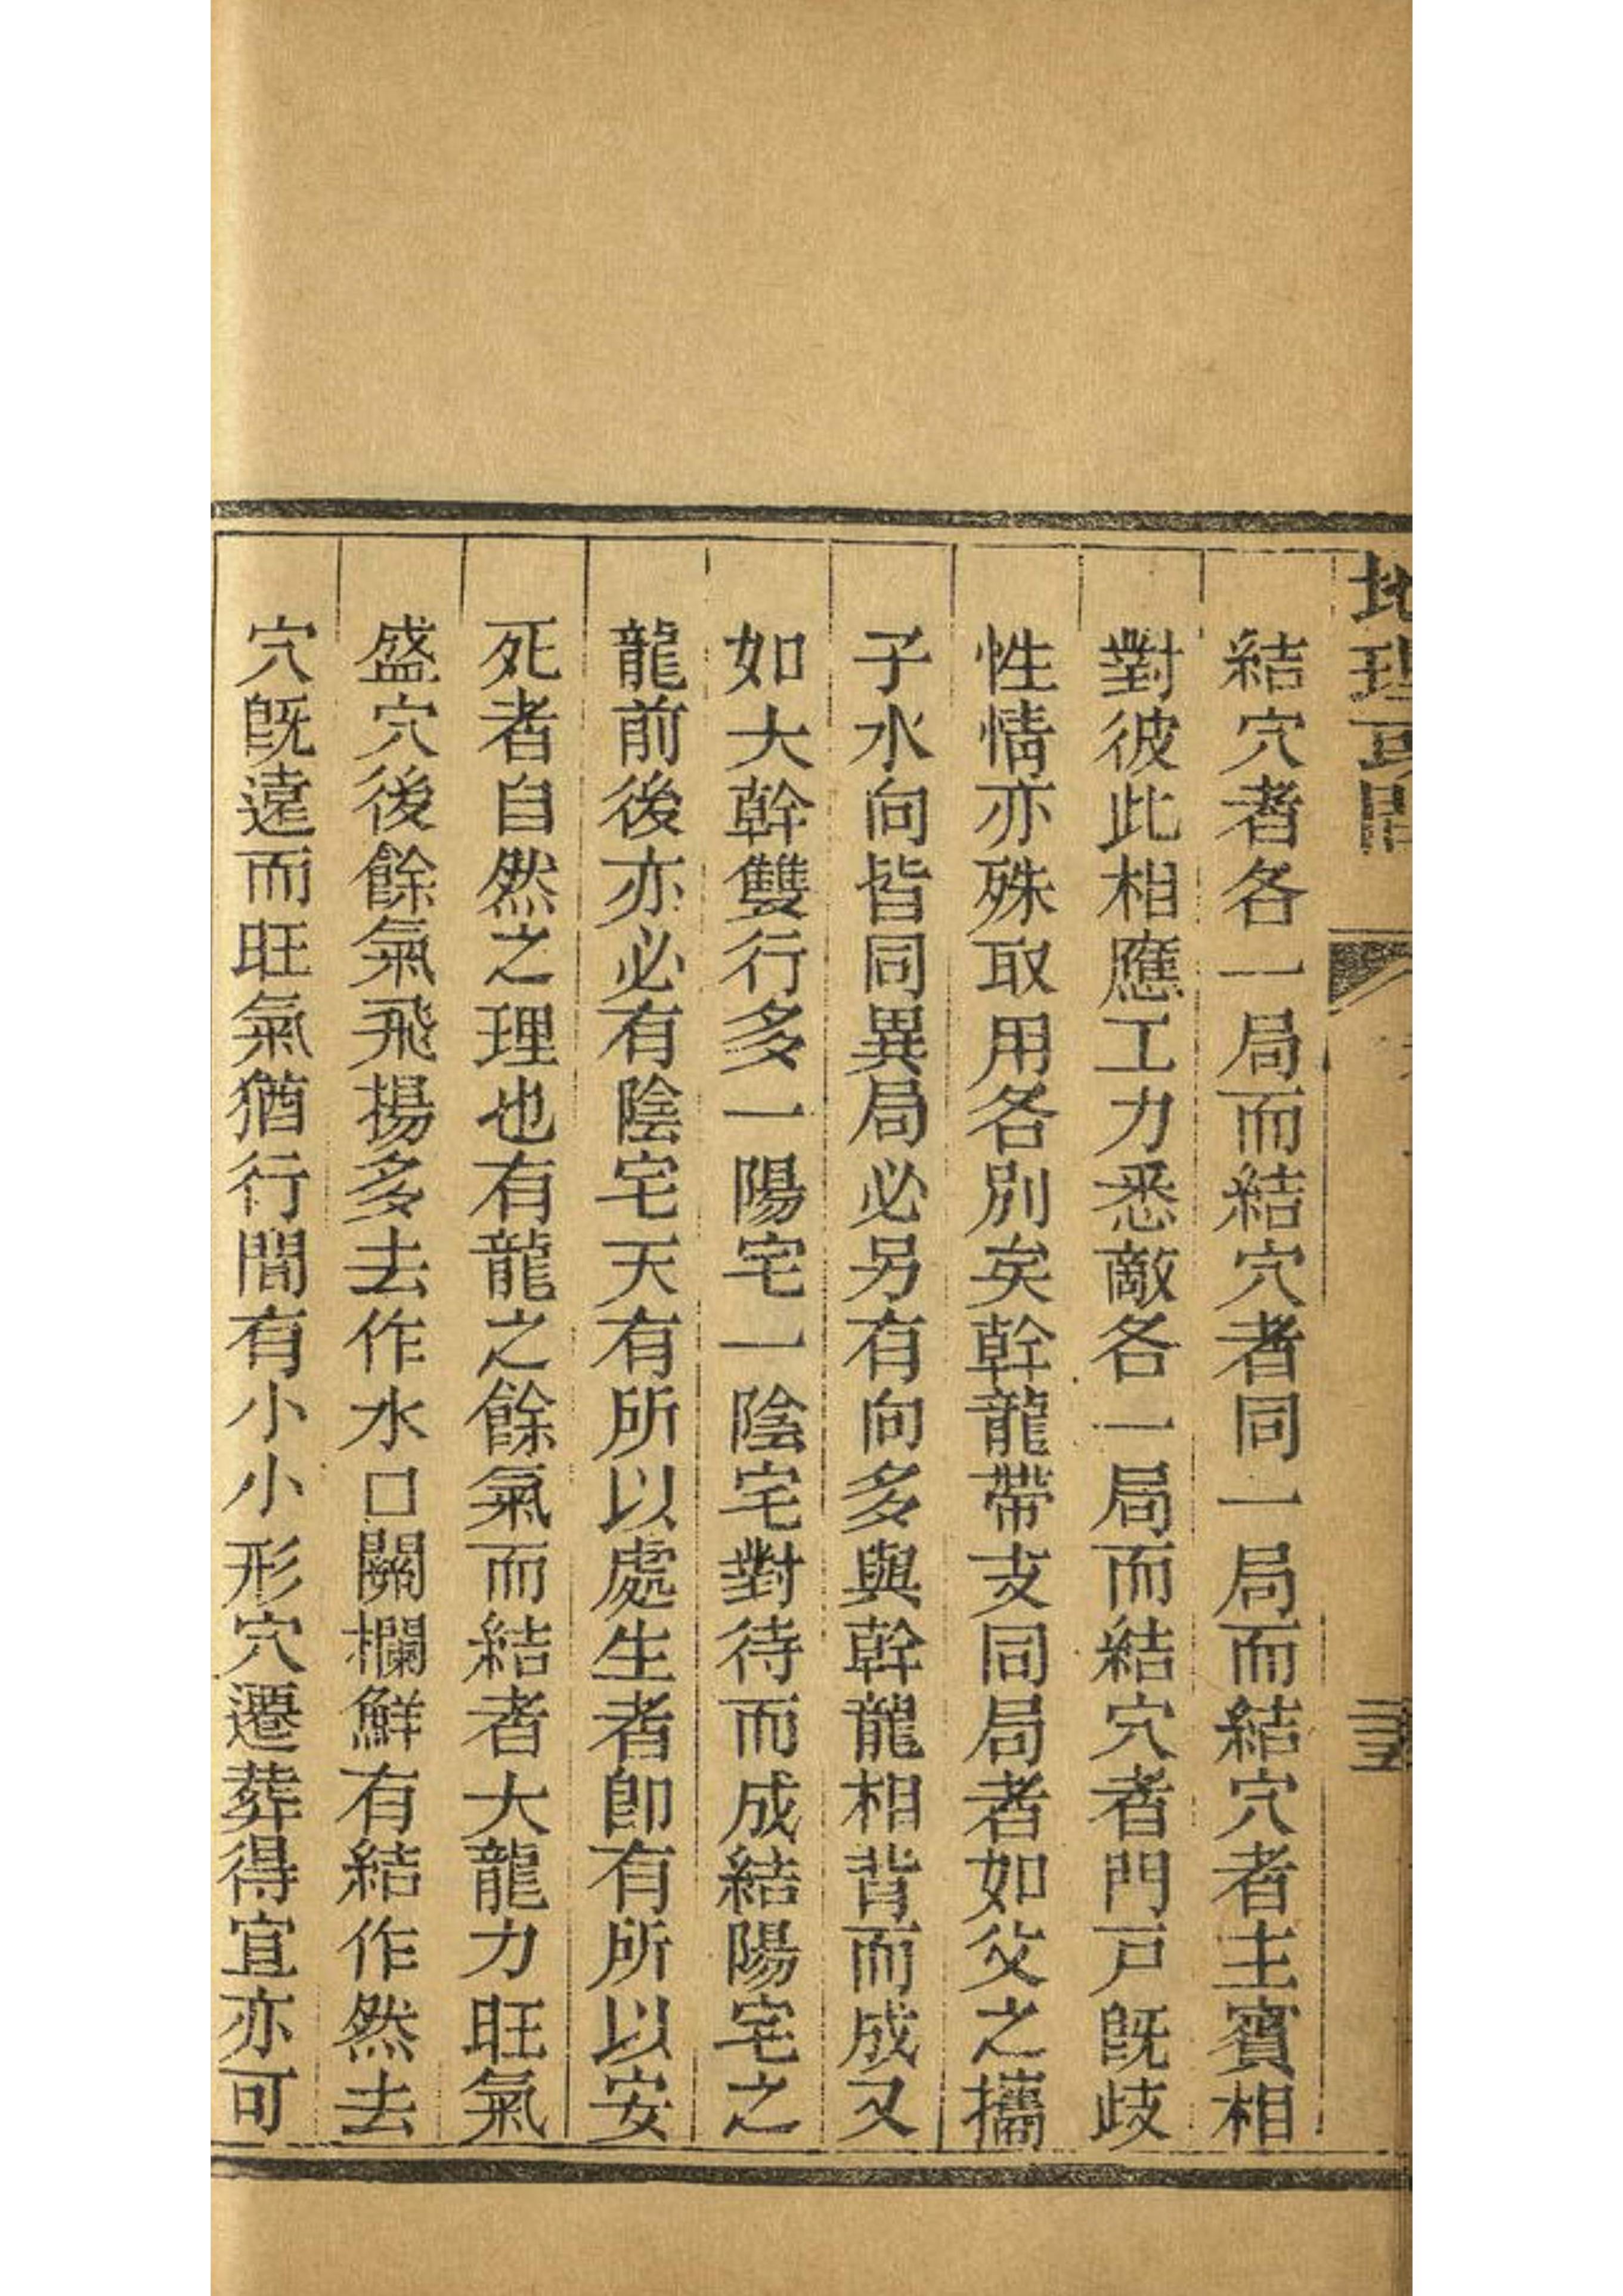 地理
結穴者各一局而結穴者同一局而結穴者主賓相
對彼此相應工力悉敵各一局而結穴者門戸旣歧
性情亦殊取用各別矣幹龍帶支同局者如父之攜
子水向皆同異局必另有向多與幹龍相背而成又
如大幹雙行多一陽宅一陰宅對待而成結陽宅之
龍前後亦必有陰宅天有所以處生者卽有所以安
死者自然之理也有龍之餘氣而結者大龍力旺氣
盛穴後餘氣飛揚多去作水口關欄鮮有結作然去
穴旣遠而旺氣猶行間有小小形穴遷葬得宜亦可